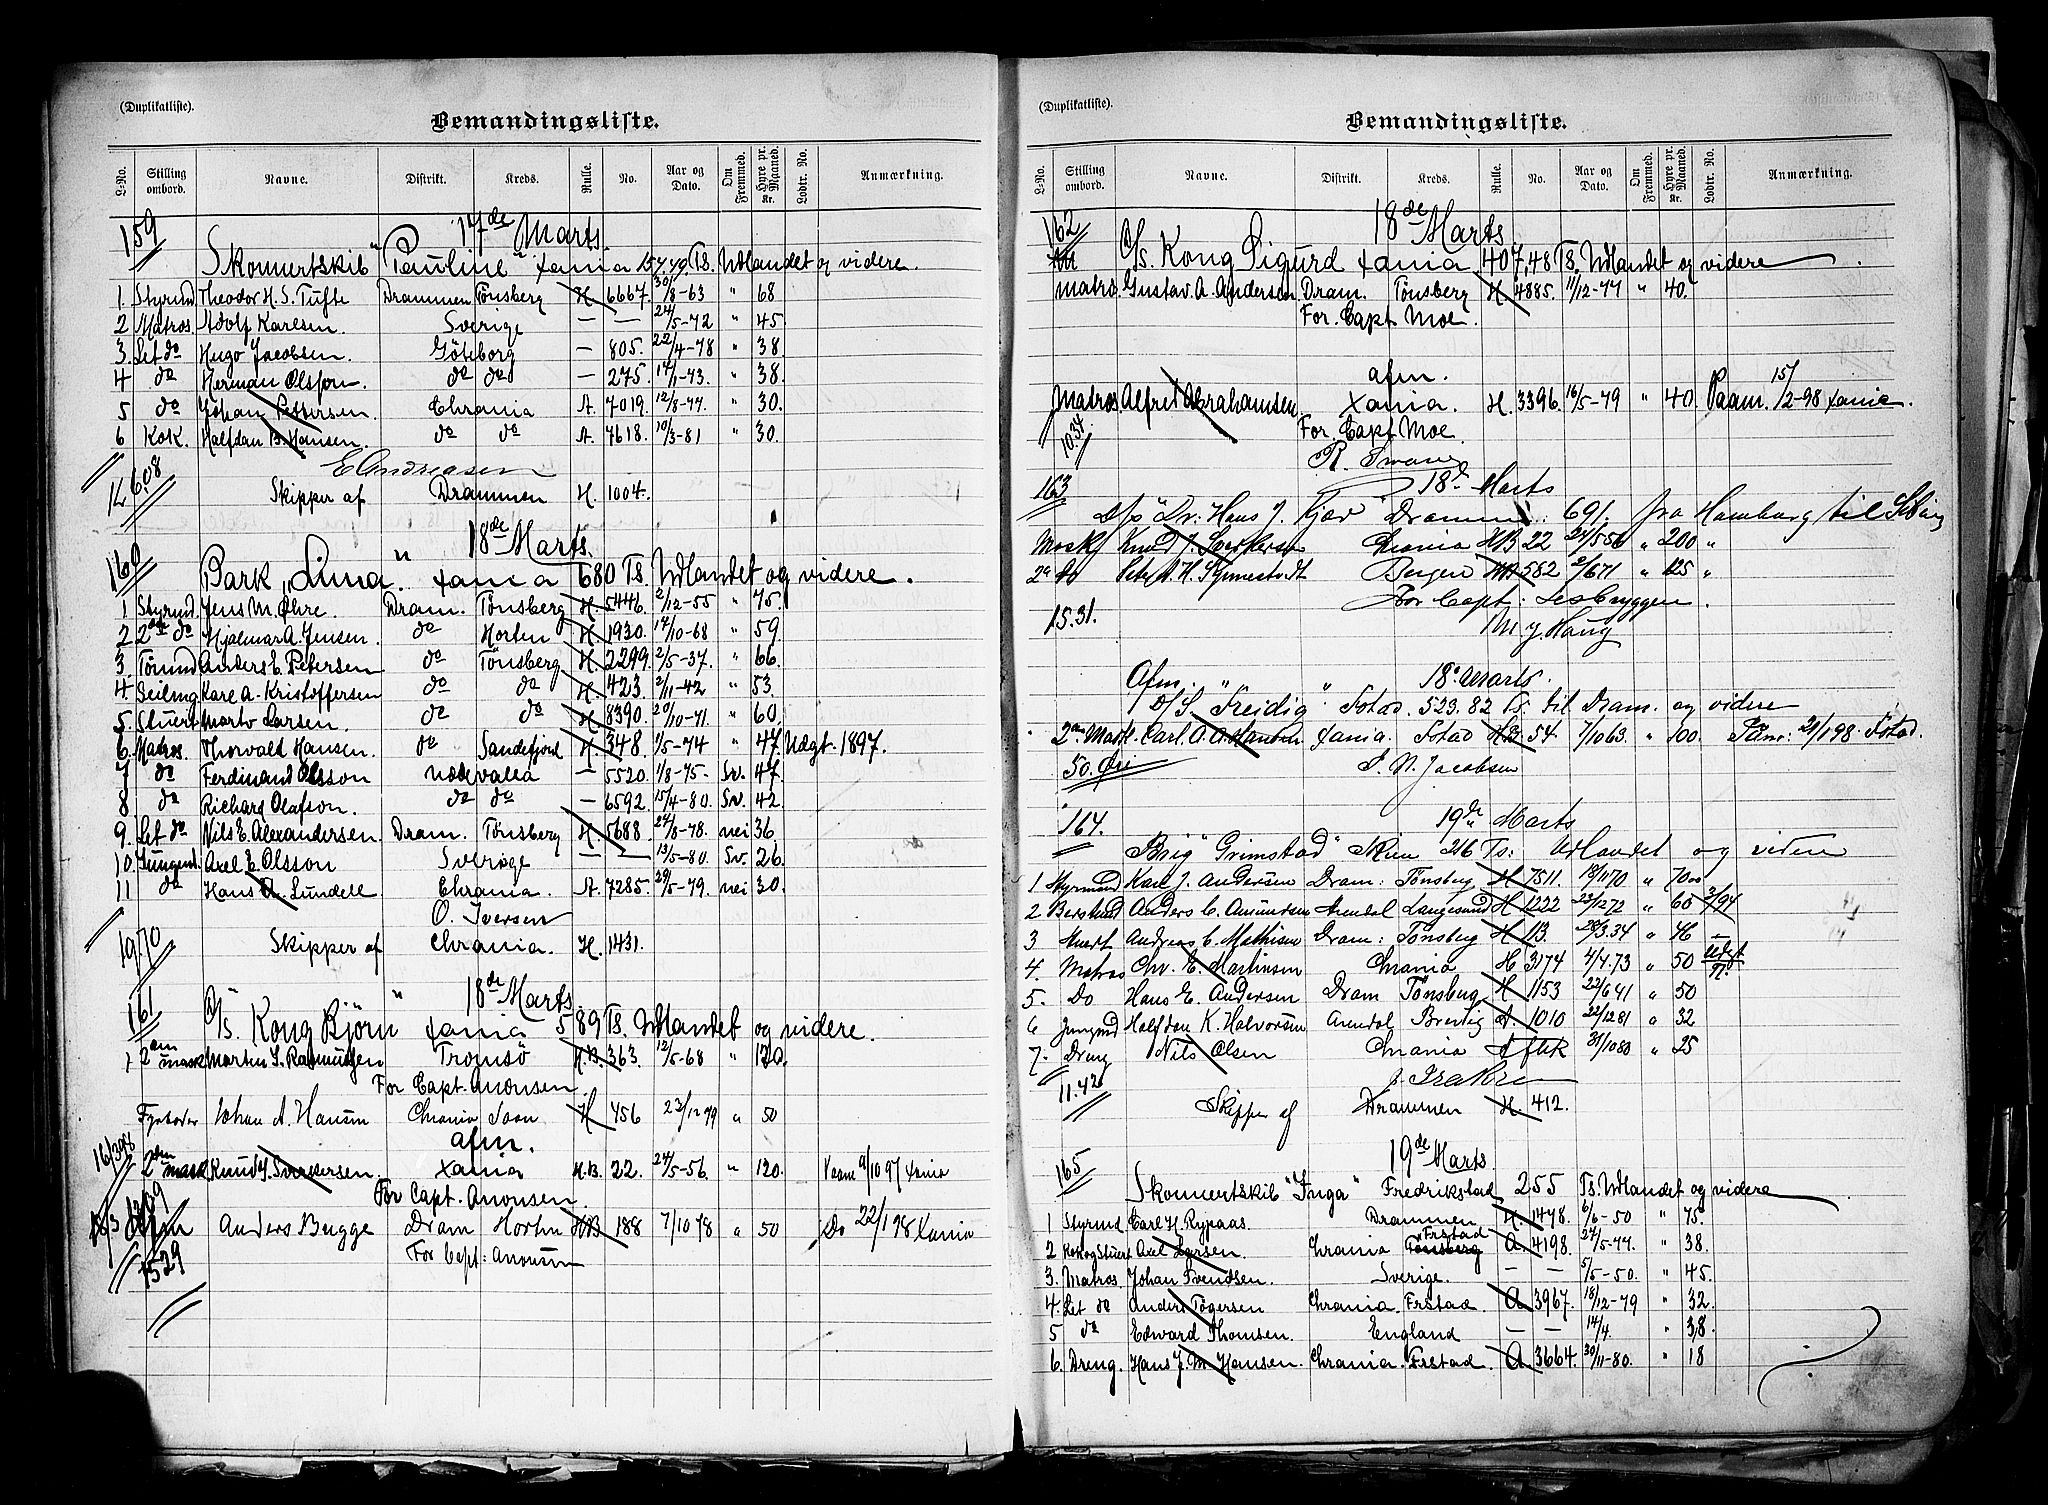 (Duplikatliste).
Bemandingsliste.
L-No. Stilling ombord. Navne. Distrikt. Kreds. Rulle. No. Aar og Dato. Om Fremmed. Hyre pr. Maaned. Kr. Lodtr. No. Anmærkning.
159 17de Marts.
Skonnertskib "Pauline" Xania 157,49 Ts. Udlandet og videre.
1. Styrmd Theodor H. S. Tufte Drammen Tönsberg H. 6667. 30/8-63 " 68
2 Matros. Adolf Karlsen. Sverige — — 24/5-72 " 45
3. Let do Hugo Jacobsen. Göteborg — 805. 22/4-78 " 38
4 do Herman Olsson. do do — 275. 14/1-73. " 38.
5 do Johan Pettersen. Chrania A. 7019. 12/8-77. " 30.
6 Kok. Halfdan B. Hansen. do do A. 7618. 10/3-81 " 30.
E Andreasen
12 6.08 Skipper af Drammen H. 1004.
160 18de Marts.
Bark "Luna" Xania 680 Ts. Udlandet og videre.
1 Styrmd. Jens M. Øhre. Dram. Tönsberg H. 5446. 2/12-55 " 75.
2 2den do Hjalmar A. Jensen. do Horten H. 1930. 14/10-68 " 59
3. Tömmd Anders E. Petersen do Tönsberg H. 2299. 2/5-37. " 66.
4. Seilmg Karl A. Kristoffersen do do H. 423. 2/11-42 " 53.
5. Stuert Martv Larsen. do do H 8390. 20/10-71. " 60.
6. Matros. Thorvald Hansen. do Sandefjord H 348. 1/5-74 " 47 Udgt. 1897.
7 do Ferdinand Olsson Uddevalla — 5520. 1/8-75. Sv. 47
8 do Richard Olafson. do do — 6592. 15/4-80. Sv. 42
9. Let do Nils E. Alexandersen. Dram. Tönsberg H. 5688 24/8-78. nei 36
10. Jungmd. Axel E. Olsson Sverige — — 13/5-80. Sv. 26.
11 do Hans A. Lundell Chrania. A. 7285. 29/5-79. nei 30.
O. Iversen
19.70 Skipper af Chrania. H. 1431.
161 18de Marts.
D/S. "Kong Björn" Xania 589 Ts. Udlandet og videre.
1 2den mask Martin S. Rasmussen Tromsö H.B. 363. 12/5-68 " 120.
For Capt. Anonsen.
Fyrböder Johan A. Hansen Chrania Soon H 456 23/12 79 " 50
afm.
16/3 98 2den mask. Knud J. Sverkersen. Xania H.B. 22. 24/5-56. " 120. Paam 9/10 97 Xania
For Capt. Anonsen.
16/3 Anders Bugge Dram Horten HB 188 7/10 78 " 50 Do 22/1 98 Xania
For Capt: Anonsen
1529
(Duplikatliste).
Bemandingsliste.
L-No. Stilling ombord. Navne. Distrikt. Kreds. Rulle. No. Aar og Dato. Om Fremmed. Hyre pr. Maaned. Kr. Lodtr. No. Anmærkning.
162 18de Marts
D/S. Kong Sigurd Xania 407,48 Ts. Udlandet og videre.
Matro. Gustav A. Andersen Dram. Tönsberg H. 4885. 11/12-77 " 40.
For. Capt. Moe.
afm.
Matros Alfred Abrahamsen Xania. H. 3396. 16/5-79 " 40. Paam. 15/2-98 Xania.
10.34. For. Capt Moe.
R. Svane
163 18de Marts
D/S "Dr: Hans J. Kjær" Drammen. 691. fra Hamburg til
Mask Knud J. Sverkersen Chrania HB 22 24/5 56 " 200 "
2den do Peter A. H. Synnestvedt Bergen HB 582 2/6 71 " 125 "
For Capt: Lesbryggen.
15.31. M. J. Haug
Afm. 18de Marts.
D/S. "Freidig" Fstad. 523.82 Ts. til Dram. og videre
2den Mask. Carl. A. A. Hansen Xania. Fstad HB. 54 7/10 63. " 100. Paam: 21/1 98. Fstad.
50. Øre S. N. Jacobsen
164. 19de Marts
Brig "Grimstad" Skien 216 Ts: Udlandet og videre
1 Styrmand Karl J. Andersen Dram: Tönsberg H 7511. 18/11 70 " 70 00
2 Bestmd Anders C. Amundsen Arendal Langesund H 1222 23/12 72 " 65 2/94
3 Stuert Andreas C. Mathisen Dram: Tönsberg H 113. 28/3.34 " 46 —
4. Matros Chr. E. Martinsen Chrania H 3174 4/4.73 " 50 Udgt
5. Do Hans E. Andersen Dram Tönsberg H 1153 22/6 41 " 50
6 Jungmd Halfdan K. Halvorsen Arendal Brevig A. 1010 22/12 81 " 32
7. Dreng Nils Olsen Chrania Aftk 31/10 80 " 25
11.42
Skipper af Drammen H. 412.
165 19de Marts
Skonnertskib "Inga" Fredrikstad 255 Ts. Udlandet og videre
1 Styrmd Carl H. Rypaas. Drammen H. 1478. 6/6-50 " 75.
2 Kok og Stuert Axel Larsen. Chrania Frstad Tönsberg A. 4198. 27/5-77. " 38.
3. Matros. Johan Svendsen. Sverige. — — 5/5-50. " 45.
4. Let do Anders Tögersen Chrania. Frstad. A 3967. 18/12-79 " 32.
5 do Edward Thomsen. England — — 14/4. " 38.
6. Dreng. Hans J. M. Hansen. Chrania. Frstad. A. 3664. 30/11-80. " 18